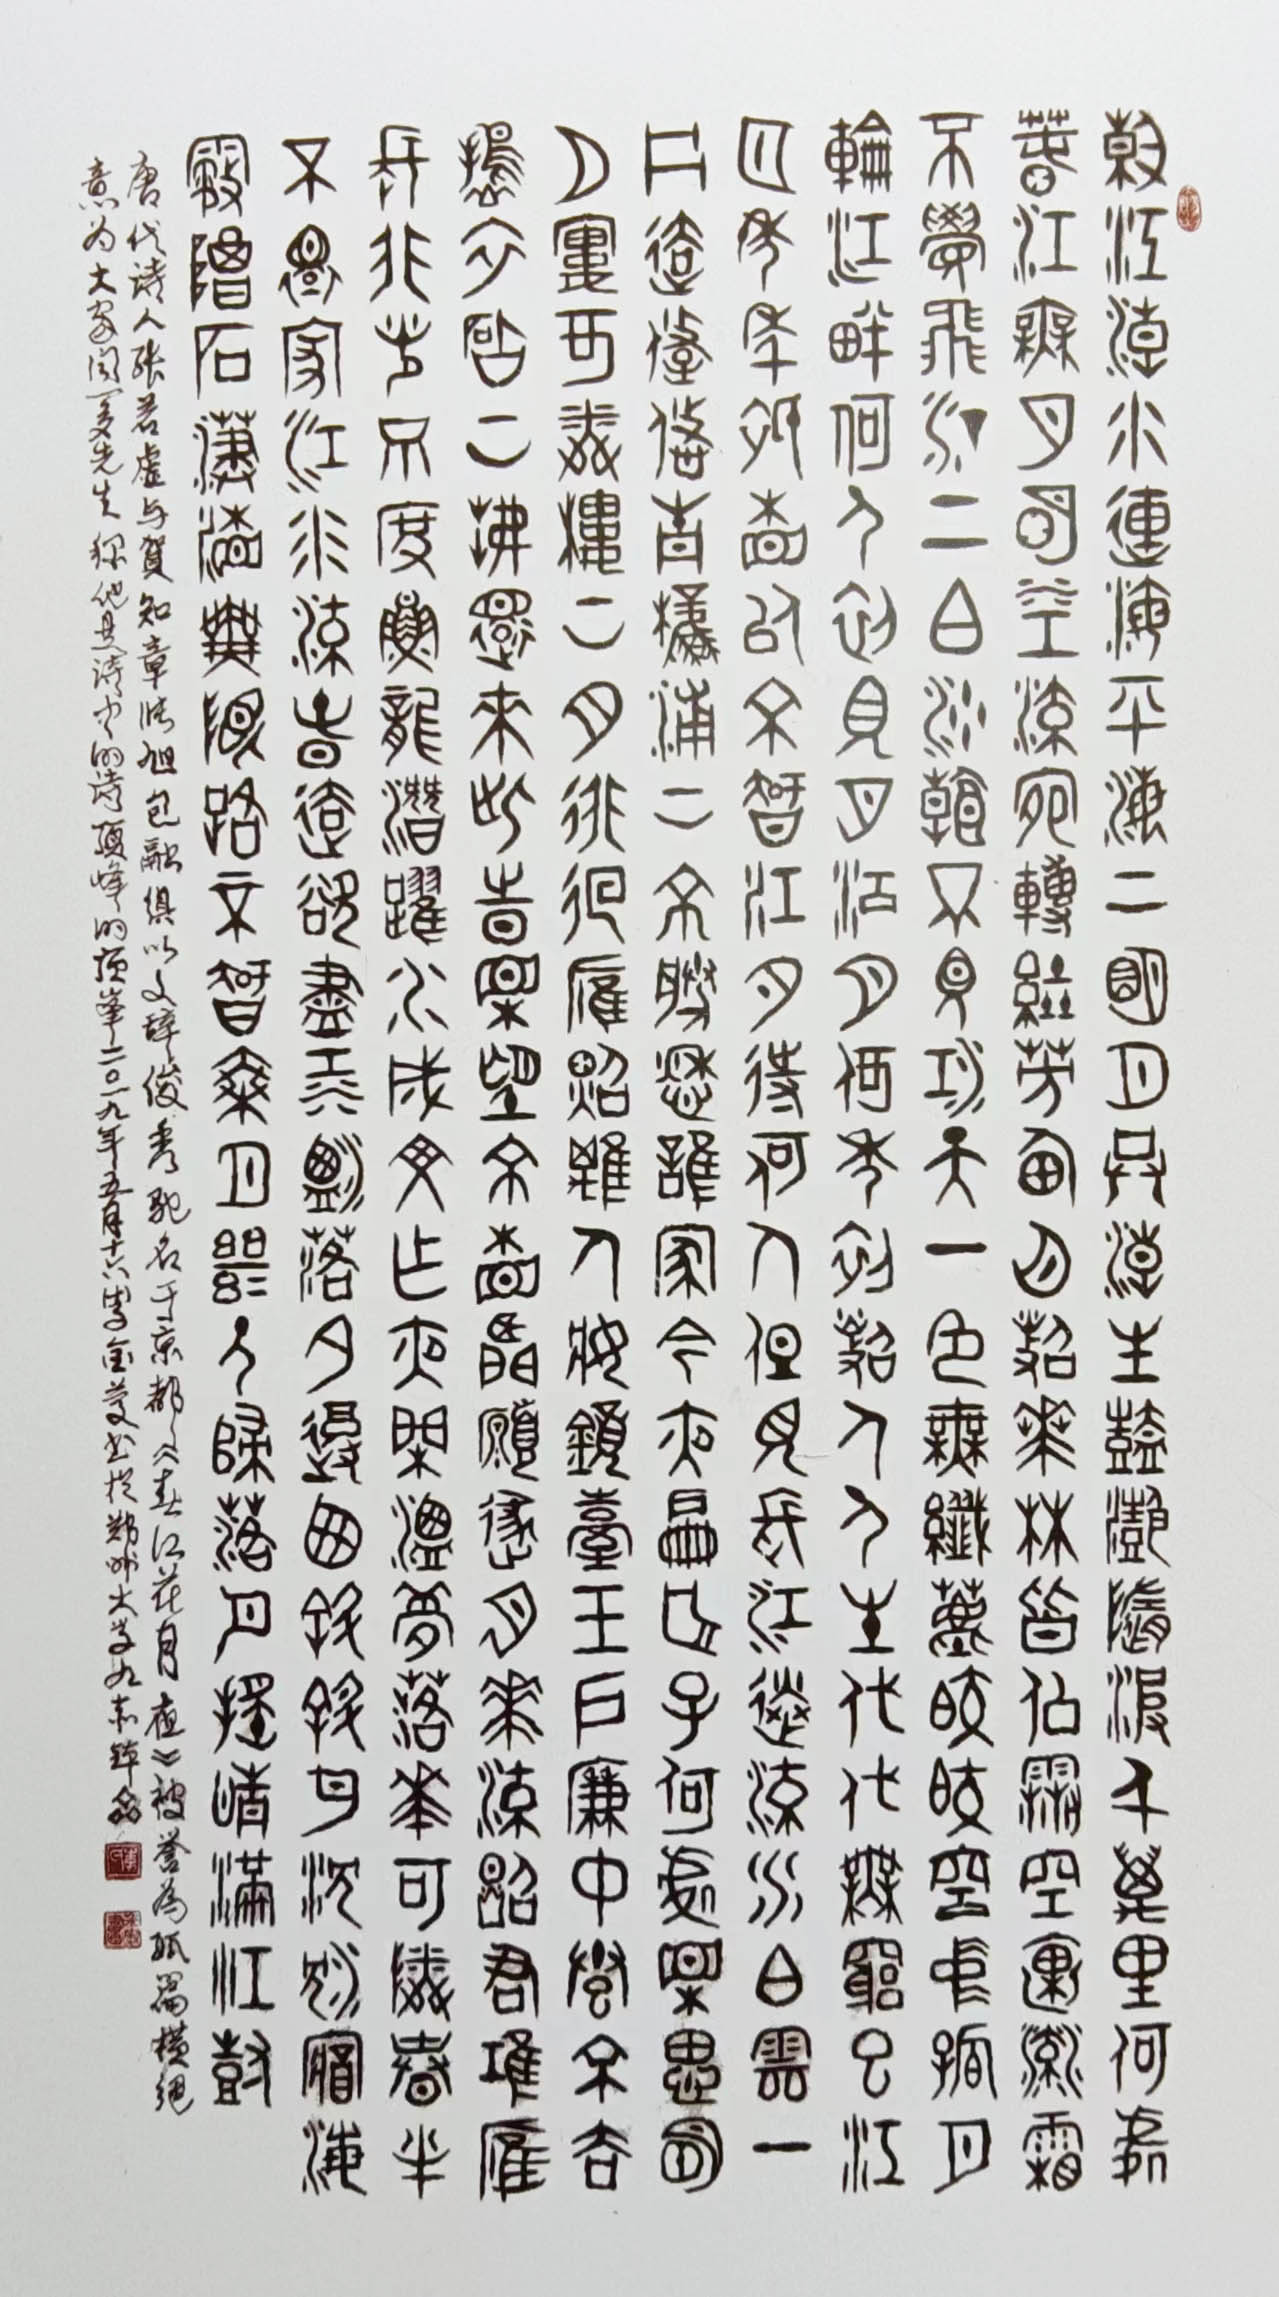 春江潮水連海平海上明月共潮生灩灩隨波千萬里何處
春江無月明江流宛轉繞芳甸月照花林皆似霰空裏流霜
不覺飛汀上白沙看不見江天一色無纖塵皎皎空中孤月
輪江畔何人初見月江月何年初照人人生代代無窮已江
月年年望相似不知江月待何人但見長江送流水白雲一
片去悠悠青楓浦上不勝愁誰家今夜扁舟子何處相思明
月樓可憐樓上月徘徊應照離人妝鏡臺玉戶簾中卷不去
擣衣砧上拂還來此時相望不相聞願逐月華流照君鴻雁
長飛光不度魚龍潛躍水成文昨夜閑潭夢落花可憐春半
不還家江水流春去欲盡江潭落月復西斜斜月沉沉藏海
霧碣石瀟湘無限路不知乘月幾人歸落月搖情滿江樹
唐代诗人张若虚与贺知章张旭包融俱以文辞俊秀驰名于京都《春江花月夜》被誉为孤篇横绝
意为大家闻一多先生称他是诗中的诗顶峰的顶峰二〇一九年五月十六李金书于郑州大学